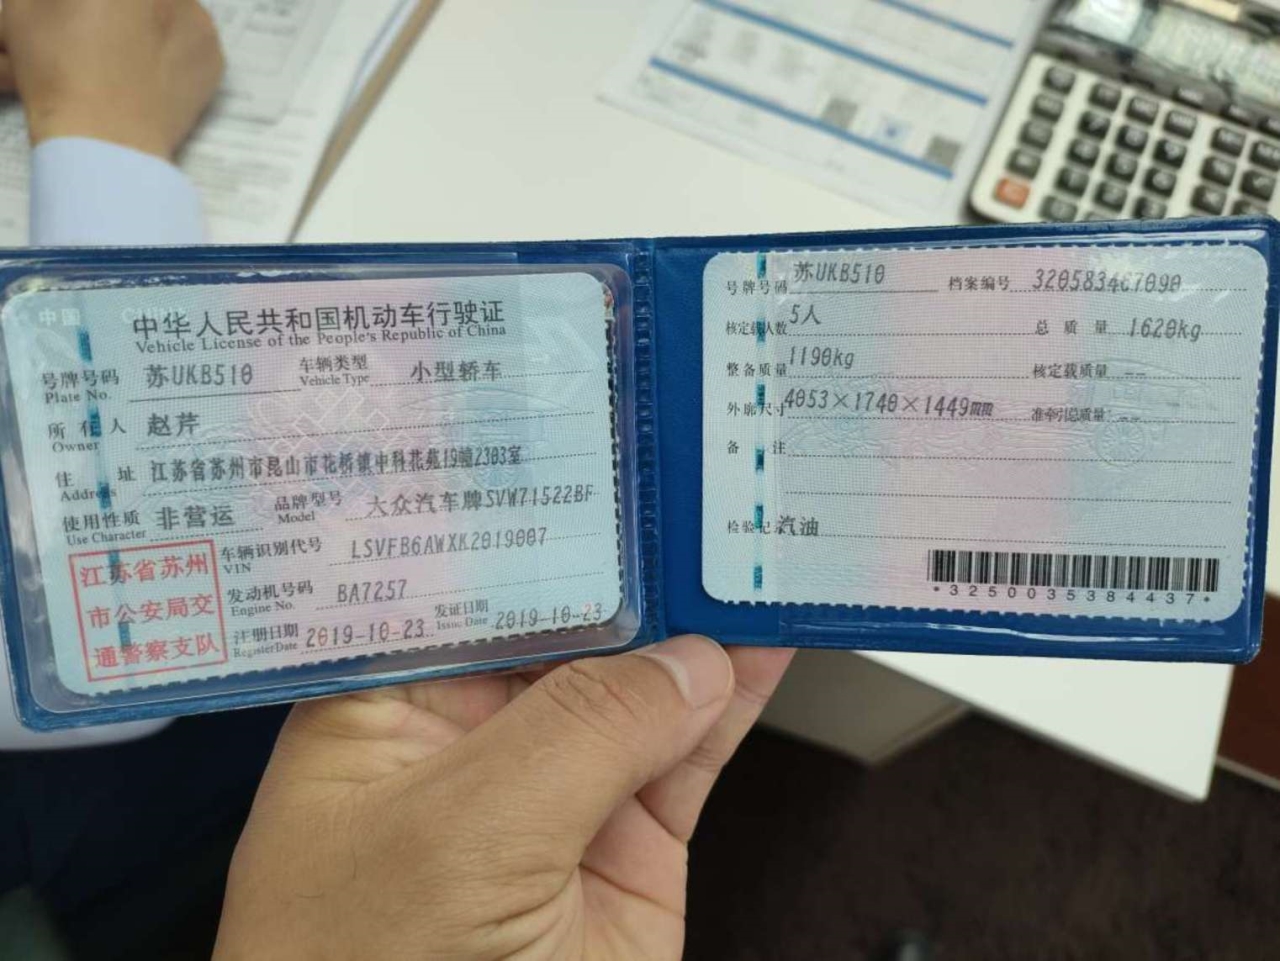 中华人民共和国机动车行驶证
Vehicle License of the People's Republic of China
号牌号码 苏UKB510 车辆类型 小型轿车
Plate No. Vehicle Type
所有人 赵芹
Owner
住 址 江苏省苏州市昆山市花桥镇中科花苑19幢2303室
Address
使用性质 非营运 品牌型号 大众汽车牌SVW71522BF
Use Character Model
车辆识别代号 LSVFB6AWXK2019007
VIN
发动机号码 BA7257
Engine No.
注册日期 2019-10-23 发证日期 2019-10-23
Register Date Issue Date
江苏省苏州
市公安局交
通警察支队
号牌号码 苏UKB510 档案编号 320583467090
核定载人数 5人 总质量 1620kg
整备质量 1190kg 核定载质量 --
外廓尺寸 4053×1740×1449mm 准牵引总质量 --
备 注
检验记录 汽油
*3250035384437*